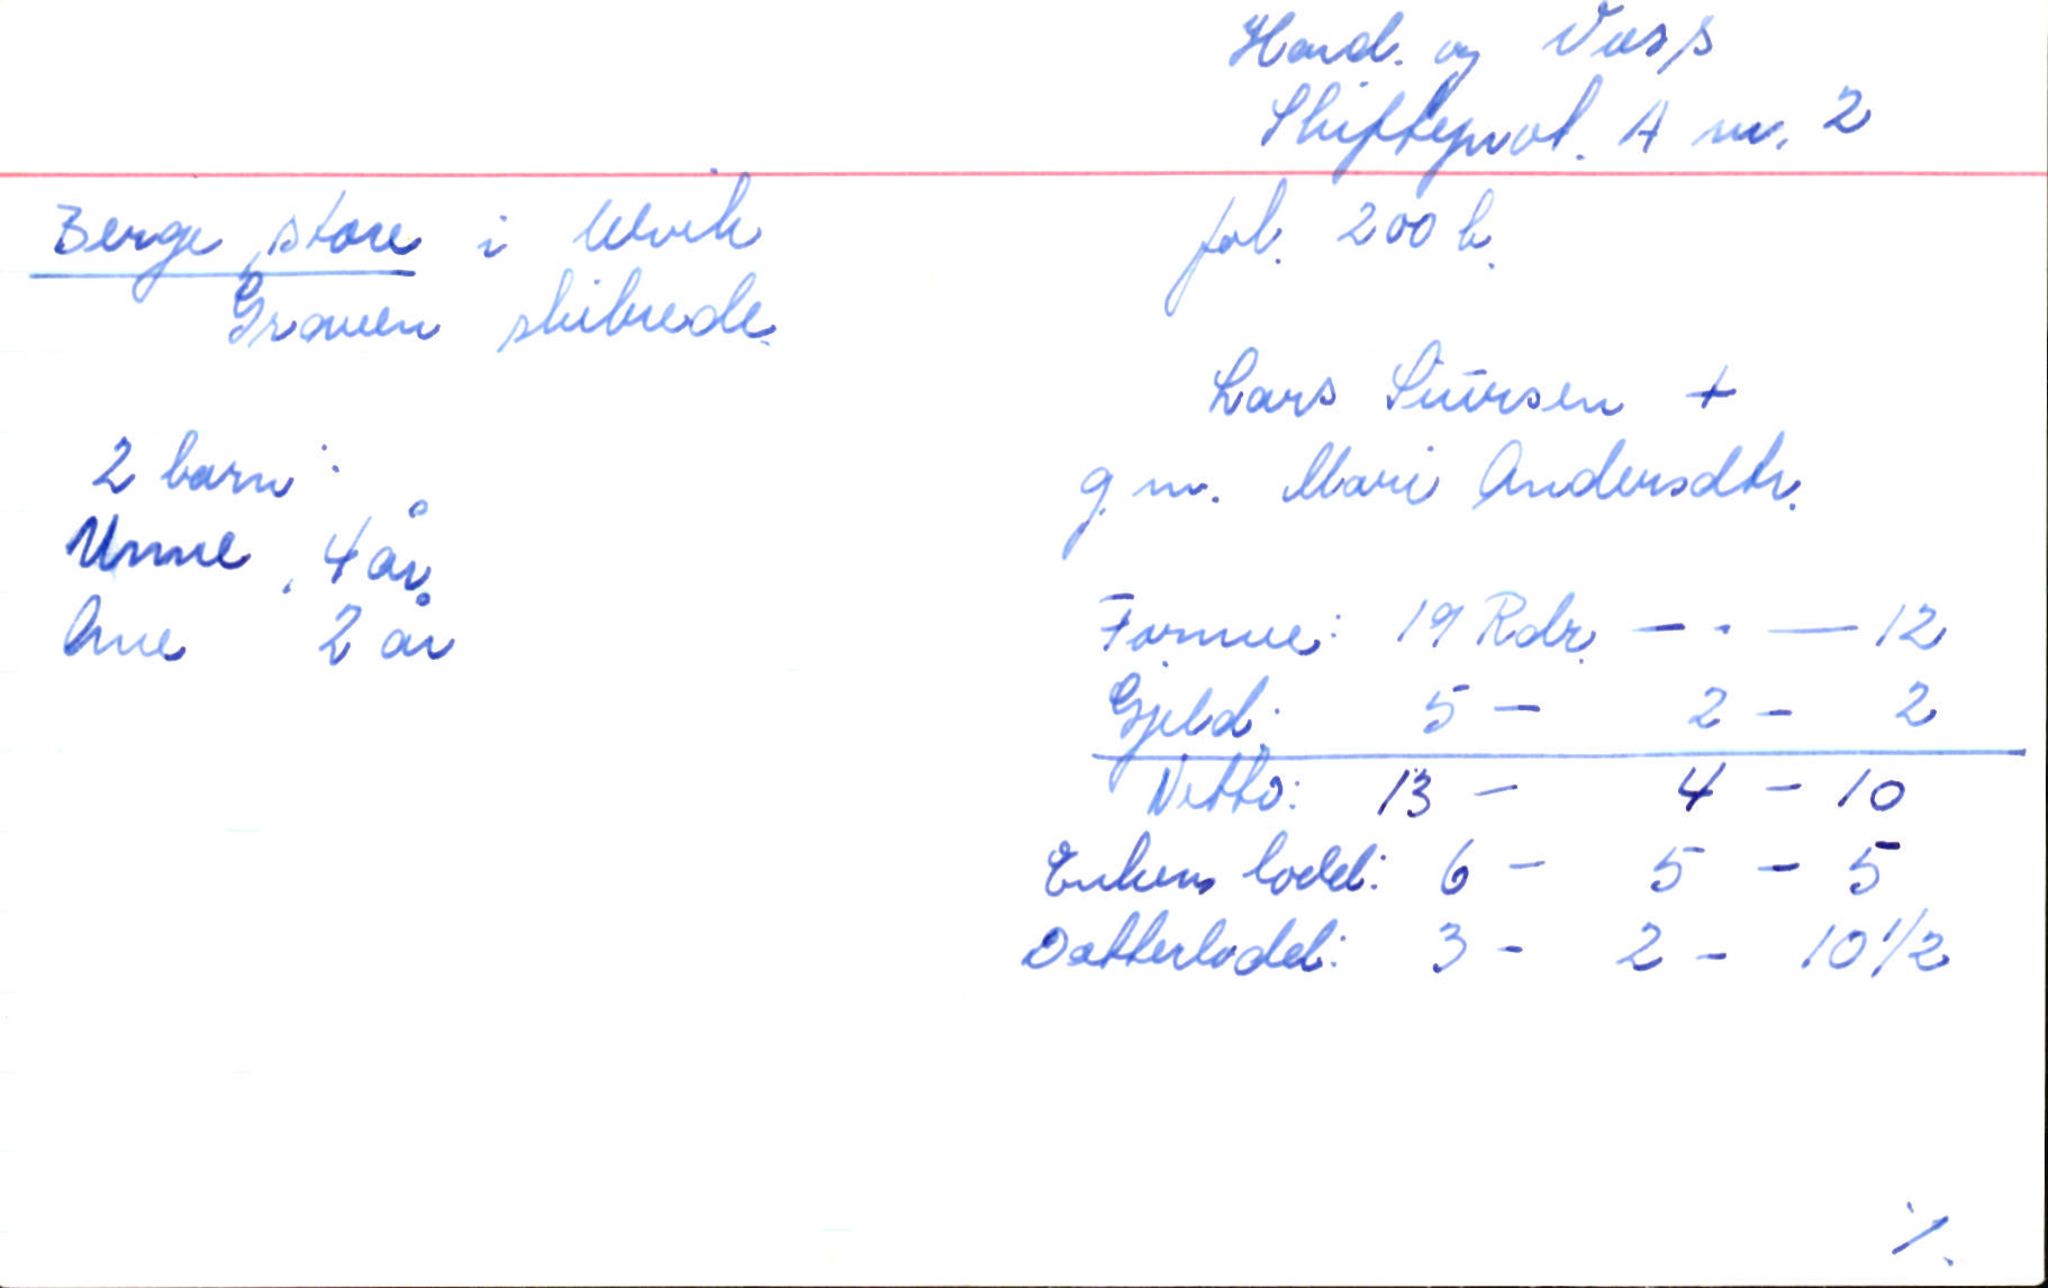 Hard. og Voss
Skifteprot. A nr. 2
Berge store i Ulvik
fol. 200 b.
Graven skibrede.
Lars Siursen +
g. m. Mari Andersdtr.
2 barn:
Unne, 4 år
Ane 2 år
Formue: 19 Rdr. - . - 12
Gjeld: 5 - 2 - 2
Netto: 13 - 4 - 10
Enkens lodd: 6 - 5 - 5
Datterlodd: 3 - 2 - 10 1/2
./.